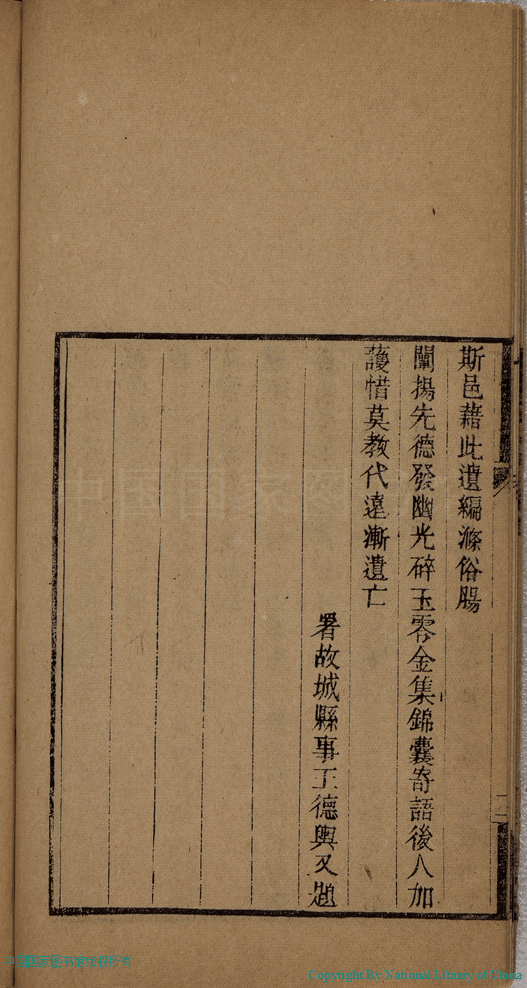 斯邑藉此遺編滌俗腸
闡揚先德發幽光碎玉零金集錦囊寄語後人加
護惜莫教代遠漸遺亡
署故城縣事王德輿又題
二
中国国家图
Copyright By National Library of China